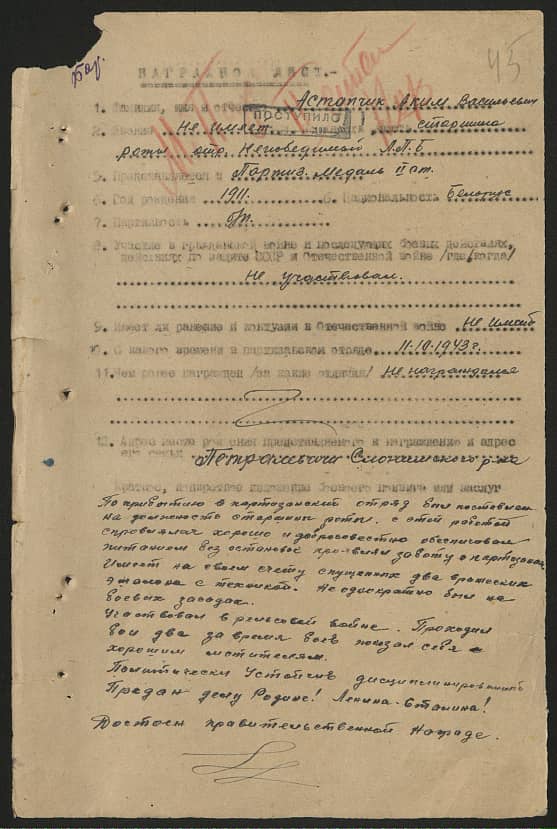 45
НАГРАДНОЙ ЛИСТ.-
1. Фамилия, имя и отчество Астапчик Аким Васильевич
ПОСТУПИЛО
2. Звание Не имеет старшина
роты отр. Непобедимой Л.П.Б
5. Представляется к Партиз. Медаль II ст.
6. Год рождения 1911. 6. Национальность Белорус
7. Партийность
8. Участие в гражданской войне и последующих боевых действиях,
действиях по защите СССР и Отечественной войне /где, когда/
Не участвовал.
9. Имеет ли ранение и контузии в Отечественной войне Не имеет
10. С какого времени в партизанском отряде 11.10.1943г.
11. Чем ранее награжден /за какие отличия/ Не награждался
12. Адрес место рождения представляемого к награждению и адрес
его семьи Петралевичи Слонимского р-на
Краткое, конкретное изложение боевого подвига или заслуг
По прибытию в партизанский отряд был поставлен
на должность старшины роты. с этой работой
справлялся хорошо и добросовестно обеспечивал
питанием без остановок проявлял заботу о партизанах
Имеет на своем счету спущенных два вражеских
эшалона с техникой. Не однократно был на
боевых засадах.
Участвовал в рельсовой войне. Проходил
бои два за время боев показал себя
хорошим мстителям.
Политически Устойчив дисциплинирован
Предан делу Родине! Ленина-Сталина!
Достоен правительственной Награде.